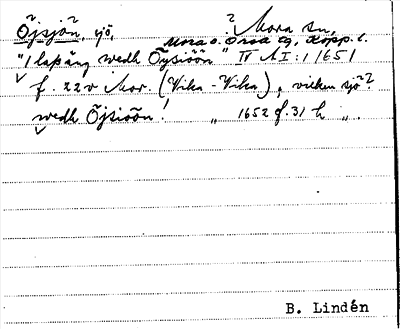 Öjsjön, sjö, ? Mora sn,
Mora o. Orsa tg, Kopp. l.
"1 lapäng wedh Öysiöön" IV A I:1 1651
f. 22v Mor. (Vika - Vika), vilken sjö?
wedh Öjsiöön! " 1652 f. 31 h ".
B. Lindén